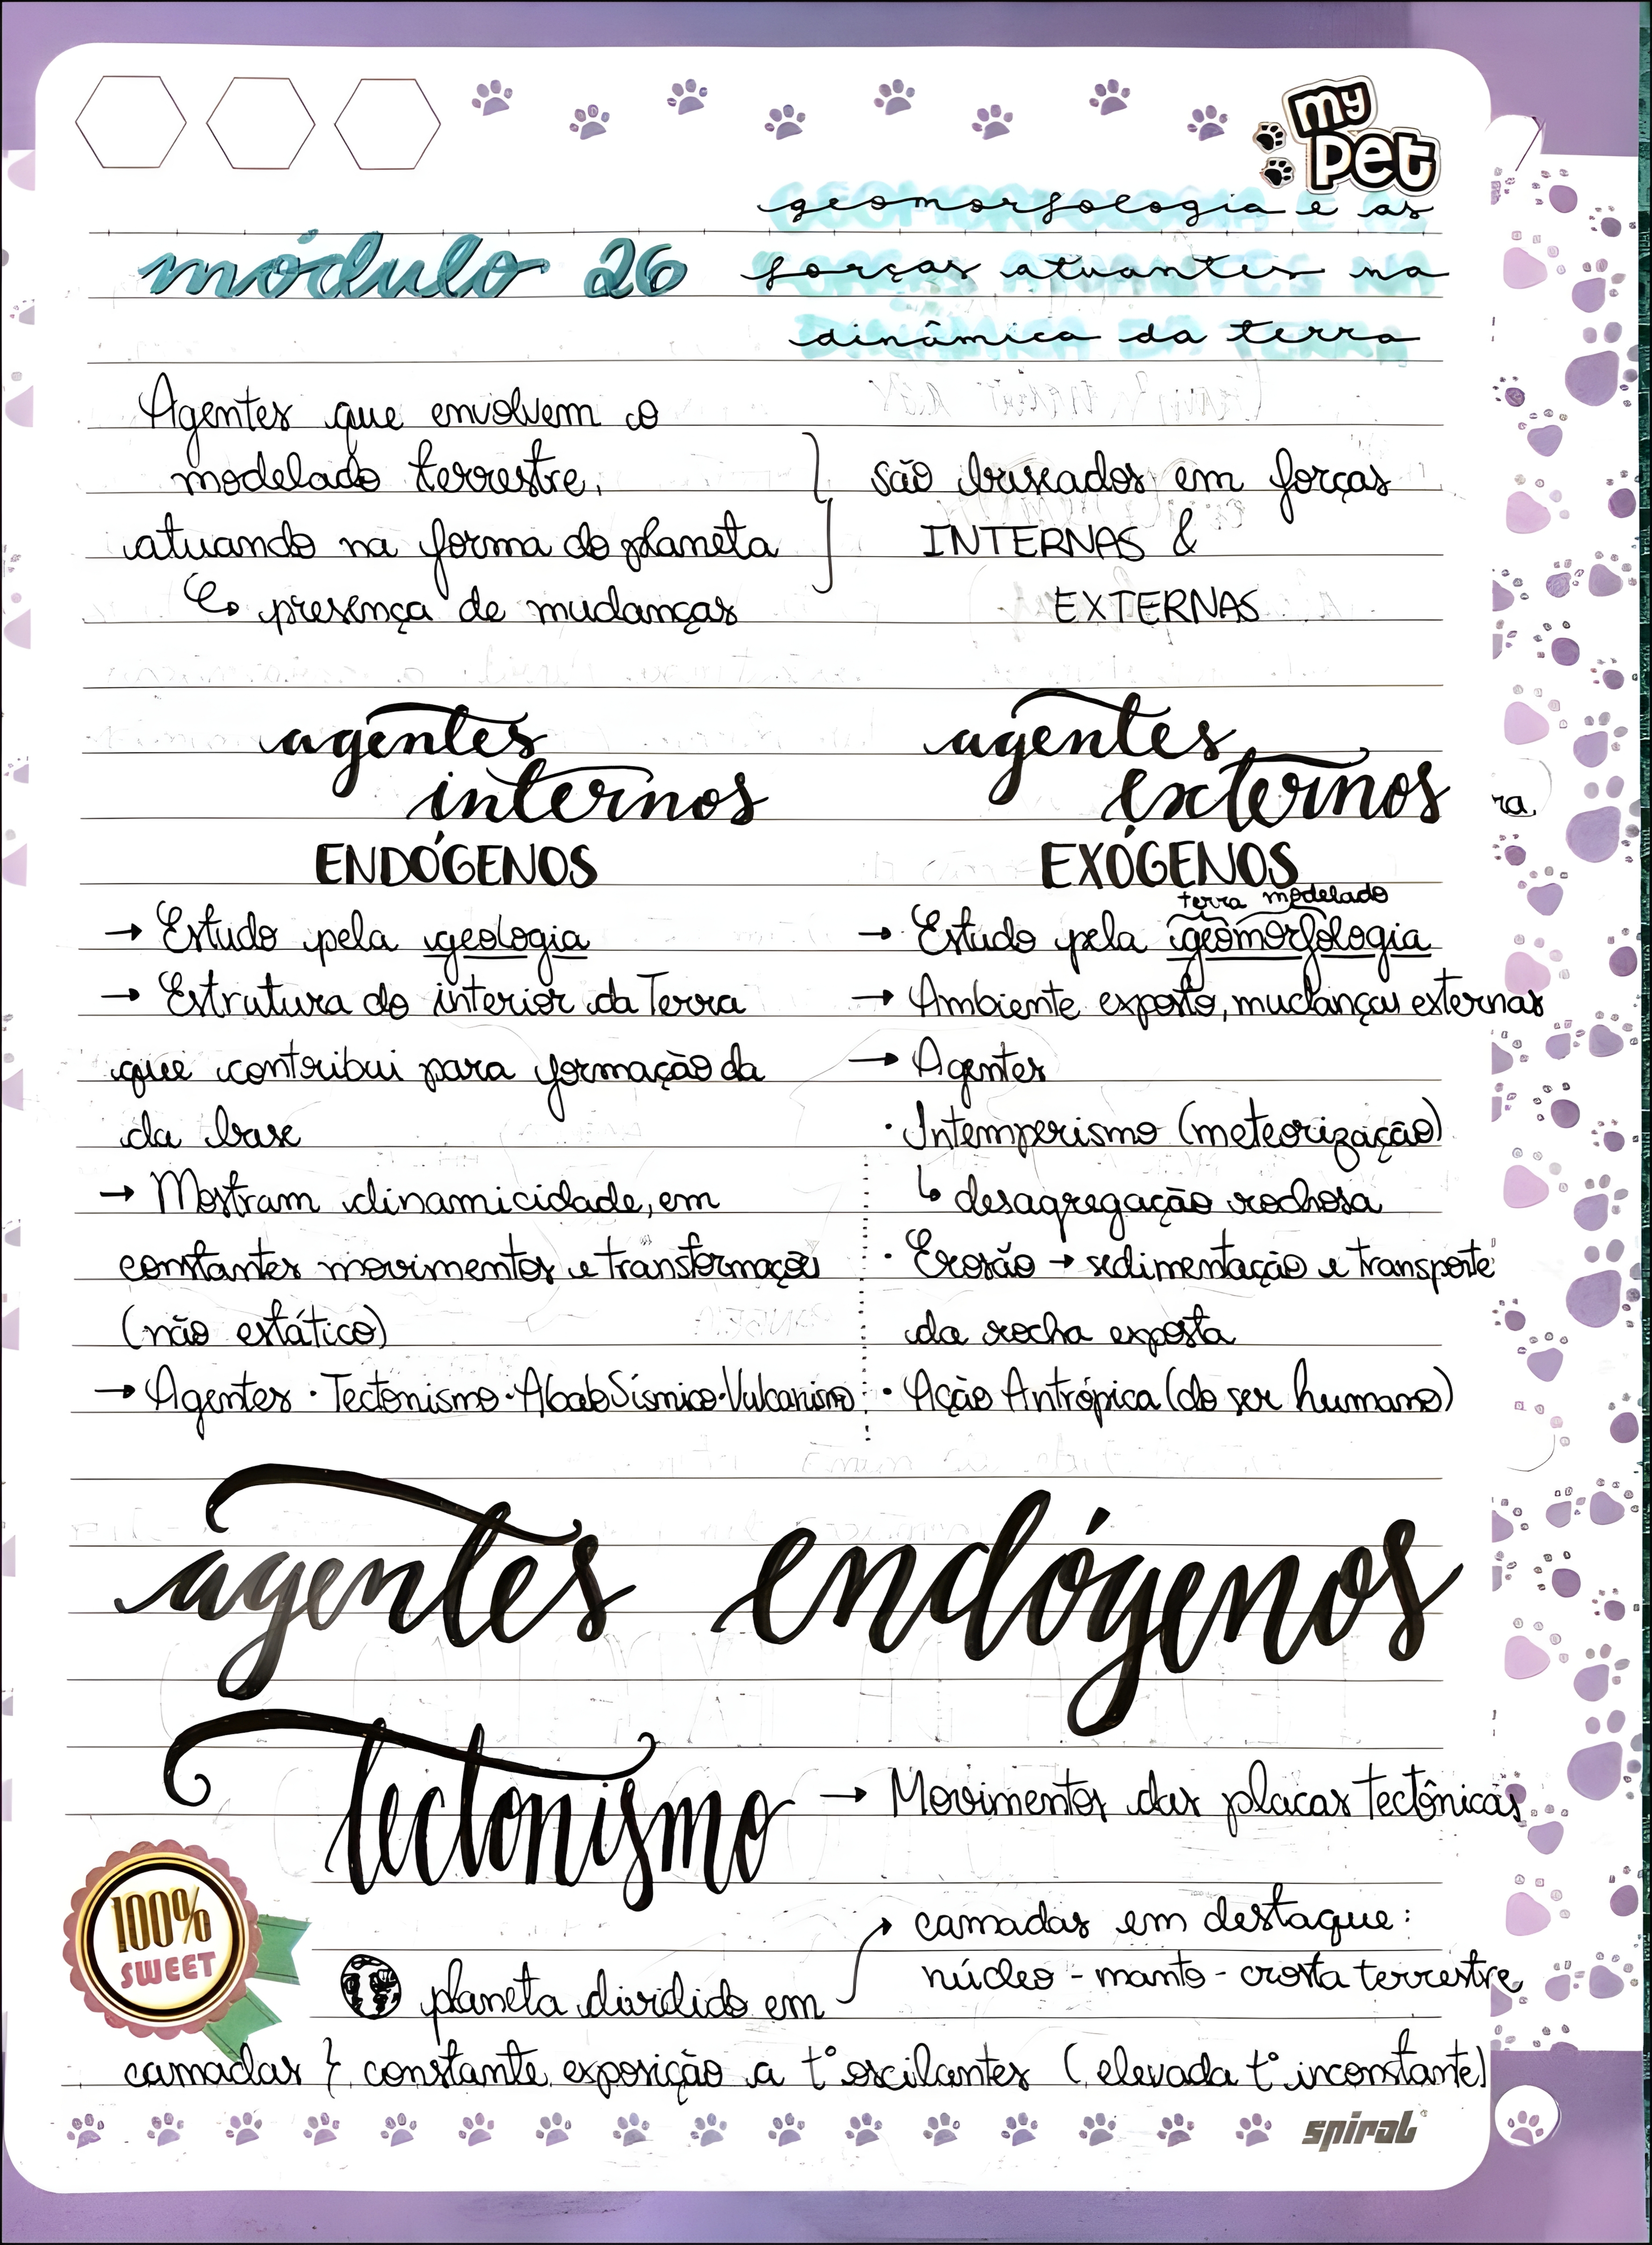 my
pet
geomorfologia e as
módulo 26
forças atuantes na
dinâmica da terra
Agentes que envolvem o
modelado terrestre,
atuando na forma do planeta
presença de mudanças
são buscados em forças
INTERNAS &
EXTERNAS
agentes
internos
ENDÓGENOS
→ Estudo pela geologia
→ Estrutura do interior da Terra
que contribui para formação da
da base
→ Mostram dinamicidade, em
constantes movimentos e transformações
(não estático)
→ Agentes · Tectonismo · Abalo Sísmico · Vulcanismo
agentes
externos
EXÓGENOS
terra modelado
→ Estudo pela geomorfologia
→ Ambiente exposto, mudanças externas
→ Agentes
· Intemperismo (meteorização)
↳ desagregação rochosa
· Erosão → sedimentação e transporte
da rocha exposta
· Ação Antrópica (do ser humano)
ra.
agentes endógenos
Tectonismo → Movimentos das placas Tectônicas
100%
SWEET
camadas em destaque:
núcleo - manto - crosta terrestre
planeta dividido em
camadas } constante exposição a t° oscilantes (elevada t° inconstante)
spiral